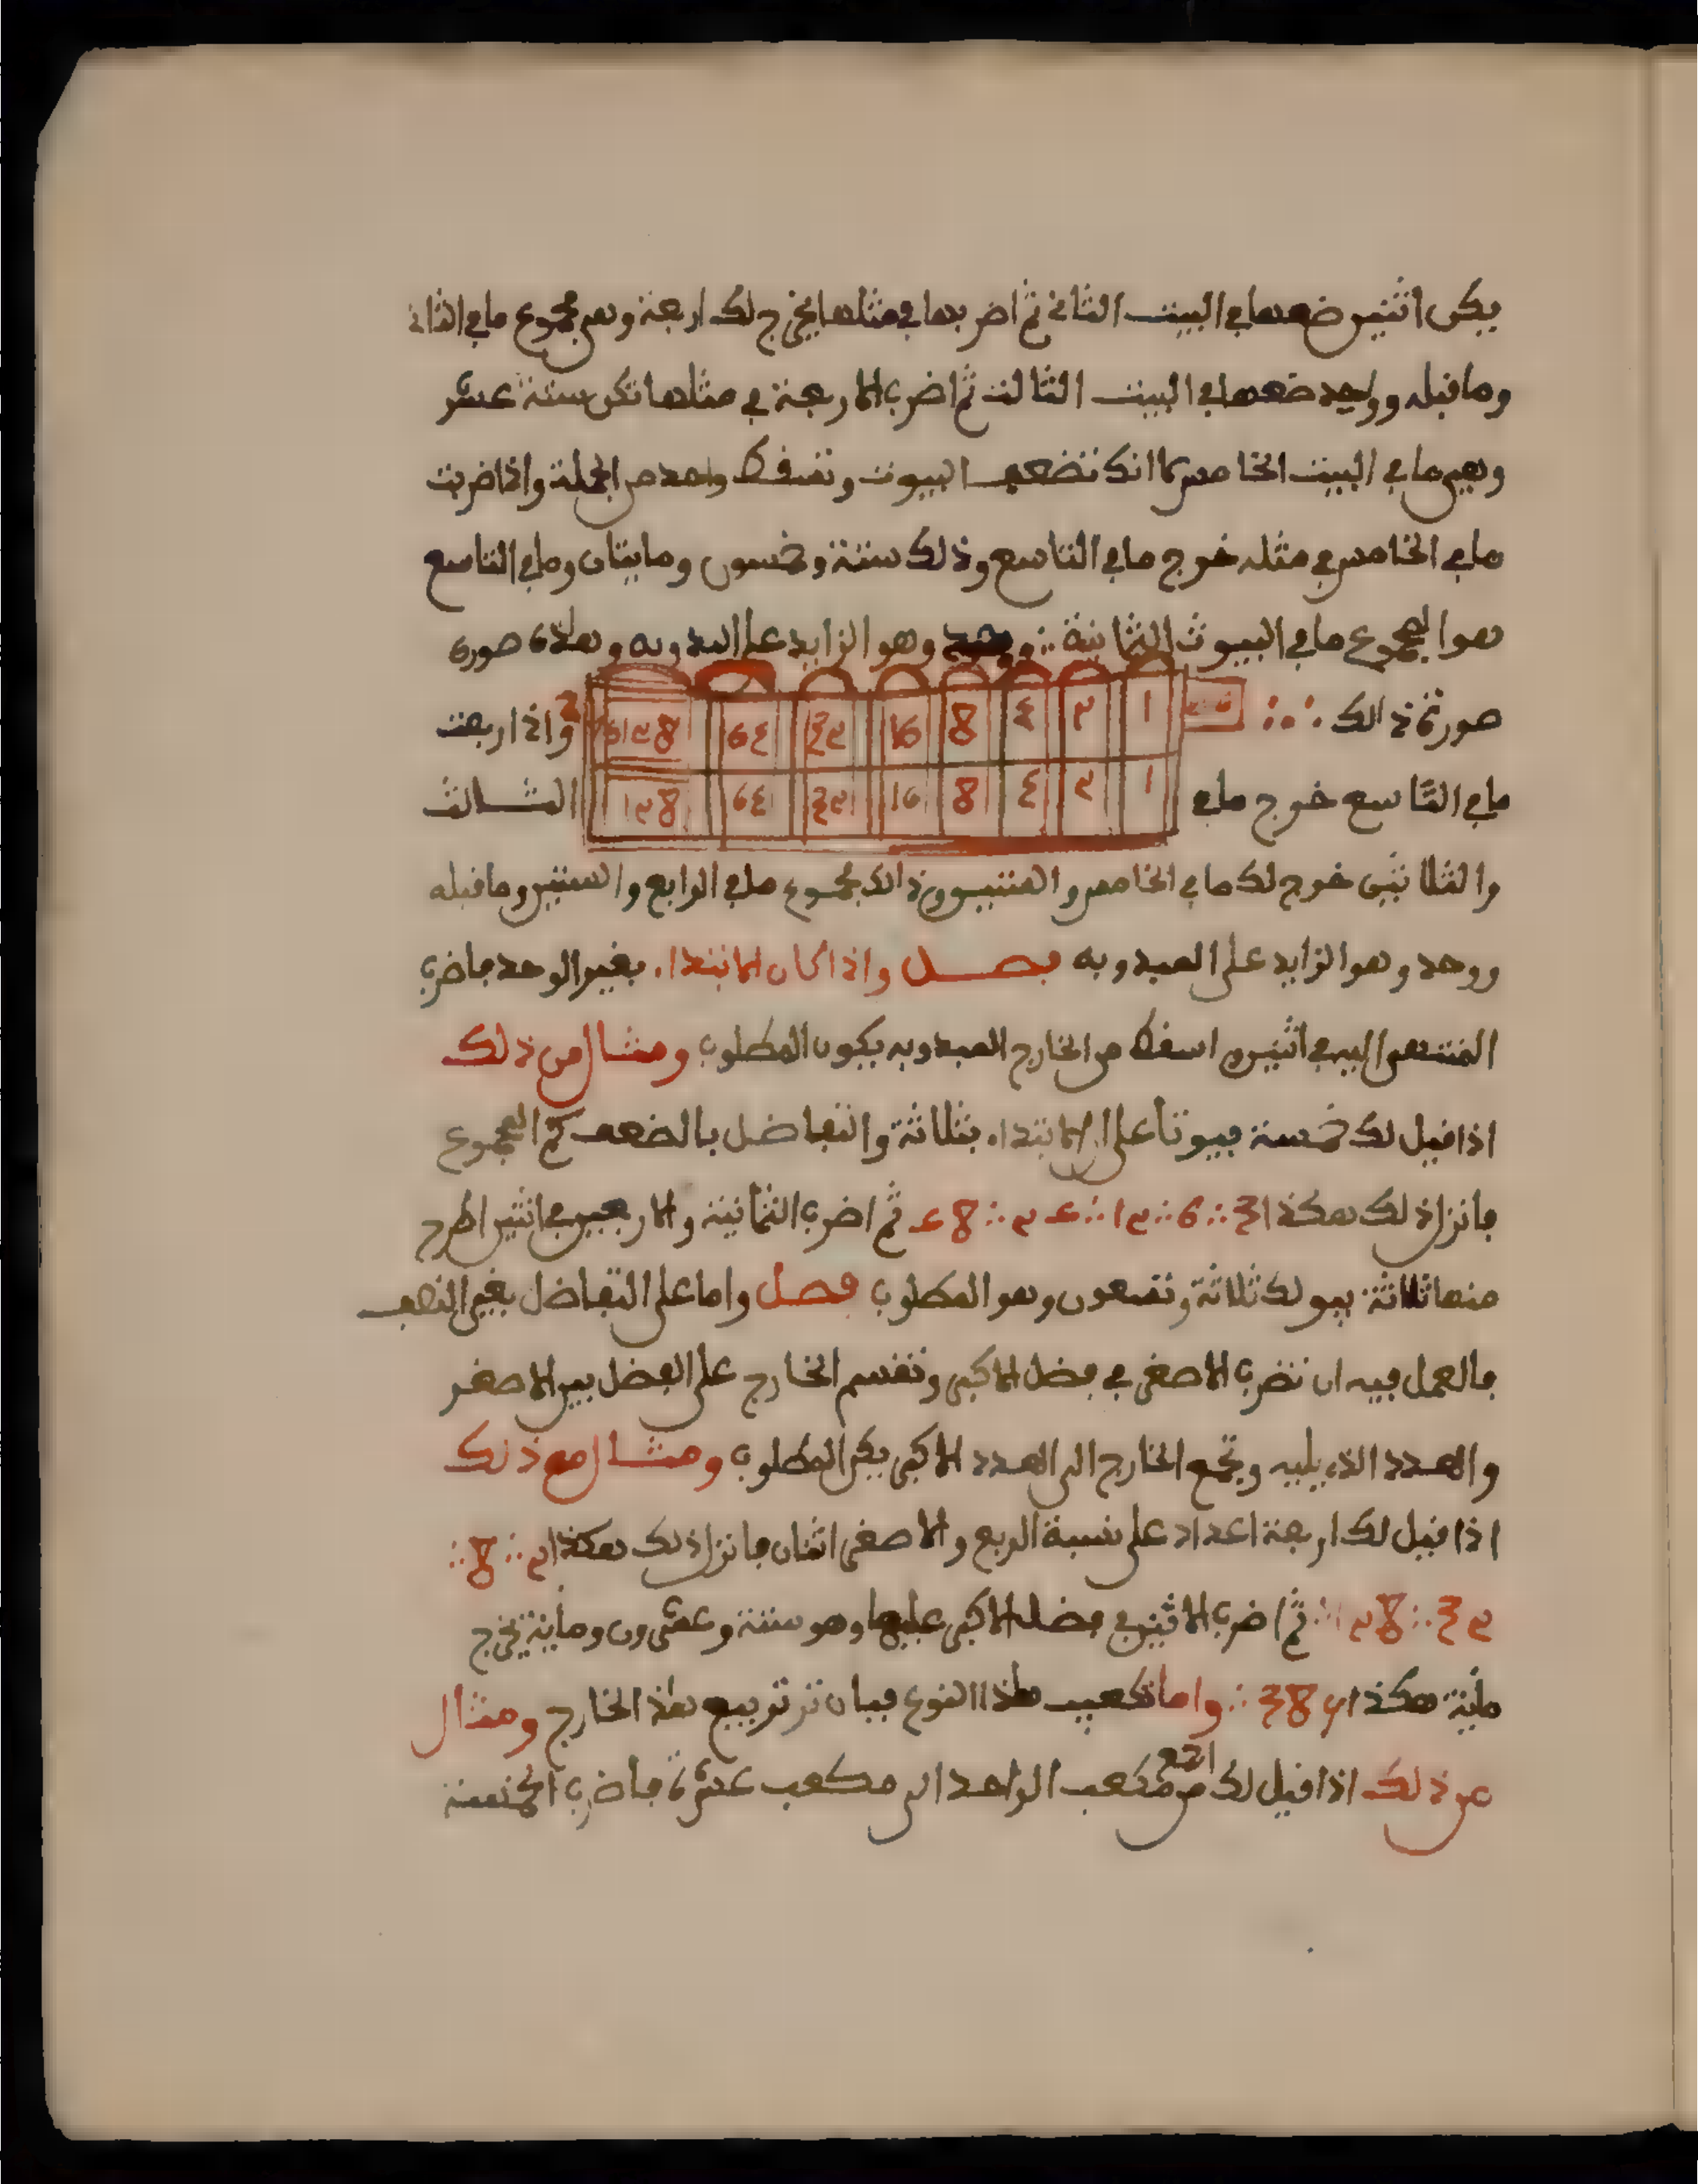 يكن اثنين ضعها في البيت الثاني ثم اضربها في مثلها يخرج لك اربعة وهي مجموع ما في الثاني
وما قبله وواحد ضعها في البيت الثالث ثم اضرب الاربعة في مثلها تكن ستة عشر
وهي ما في البيت الخامس كما انك تضعف البيوت وتسقط واحد من الجملة واذا ضربت
ما في الخامس في مثله خرج ما في التاسع وذلك ستة وخمسون ومايتان وما في التاسع
هوا لمجموع ما في البيوت الثمانية ∴ ووحد وهو الزايد على المبدو به وهذه صورة
صورة ذالك ∴
1 2 4 8 16 32 64 128
1 2 4 8 16 32 64 128
واذا ربعت
ما في التاسع خرج ما في الثالث
والثلاثين خرج لك ما في الخامس والستيون ذالك مجموع ما في الرابع والستين وما قبله
ووحد وهو الزايد على المبدو به فصل واذا كان الابتداء بغير الوحد فاضرب
المنتهى اليه في اثنين واسقط من الخارج المبدو به يكون المطلوب ومثال من ذلك
اذا قيل لك خمسة بيوتا على الابتداء بثلاثة والتفاضل بالضعف كم المجموع
فانزل ذلك هكذا 3 ∴ 6 ∴ 12 ∴ 24 ∴ 48 ثم اضرب الثمانية والاربعين في اثنين اطرح
منها ثلاثة يبو لك ثلاثة وتسعون وهو المطلوب فصل واما على التفاضل بغير النصف
فالعمل فيه ان تضرب الاصغر في فضل الاكبر وتقسم الخارج على الفضل بين الاصغر
والعدد الذي يليه وتجمع الخارج الى العدد الاكبر يكن المطلوب ومثال مع ذلك
اذا قيل لك اربعة اعداد على نسبة الربع والاصغر اثنان فانزل ذلك هكذا 2 ∴ 8 ∴
32 ∴ 128 ∴ ثم اضرب الاثنين في فضل الاكبر عليها وهو ستة وعشرون وماية يخرج
ماية هكذا
واما تكعيب هذا النوع فبان تربيع هذا الخارج ومثال
عن ذلك اذا قيل لك اجمع من مكعب الواحد الى مكعب عشرة فاضرب الخمسة